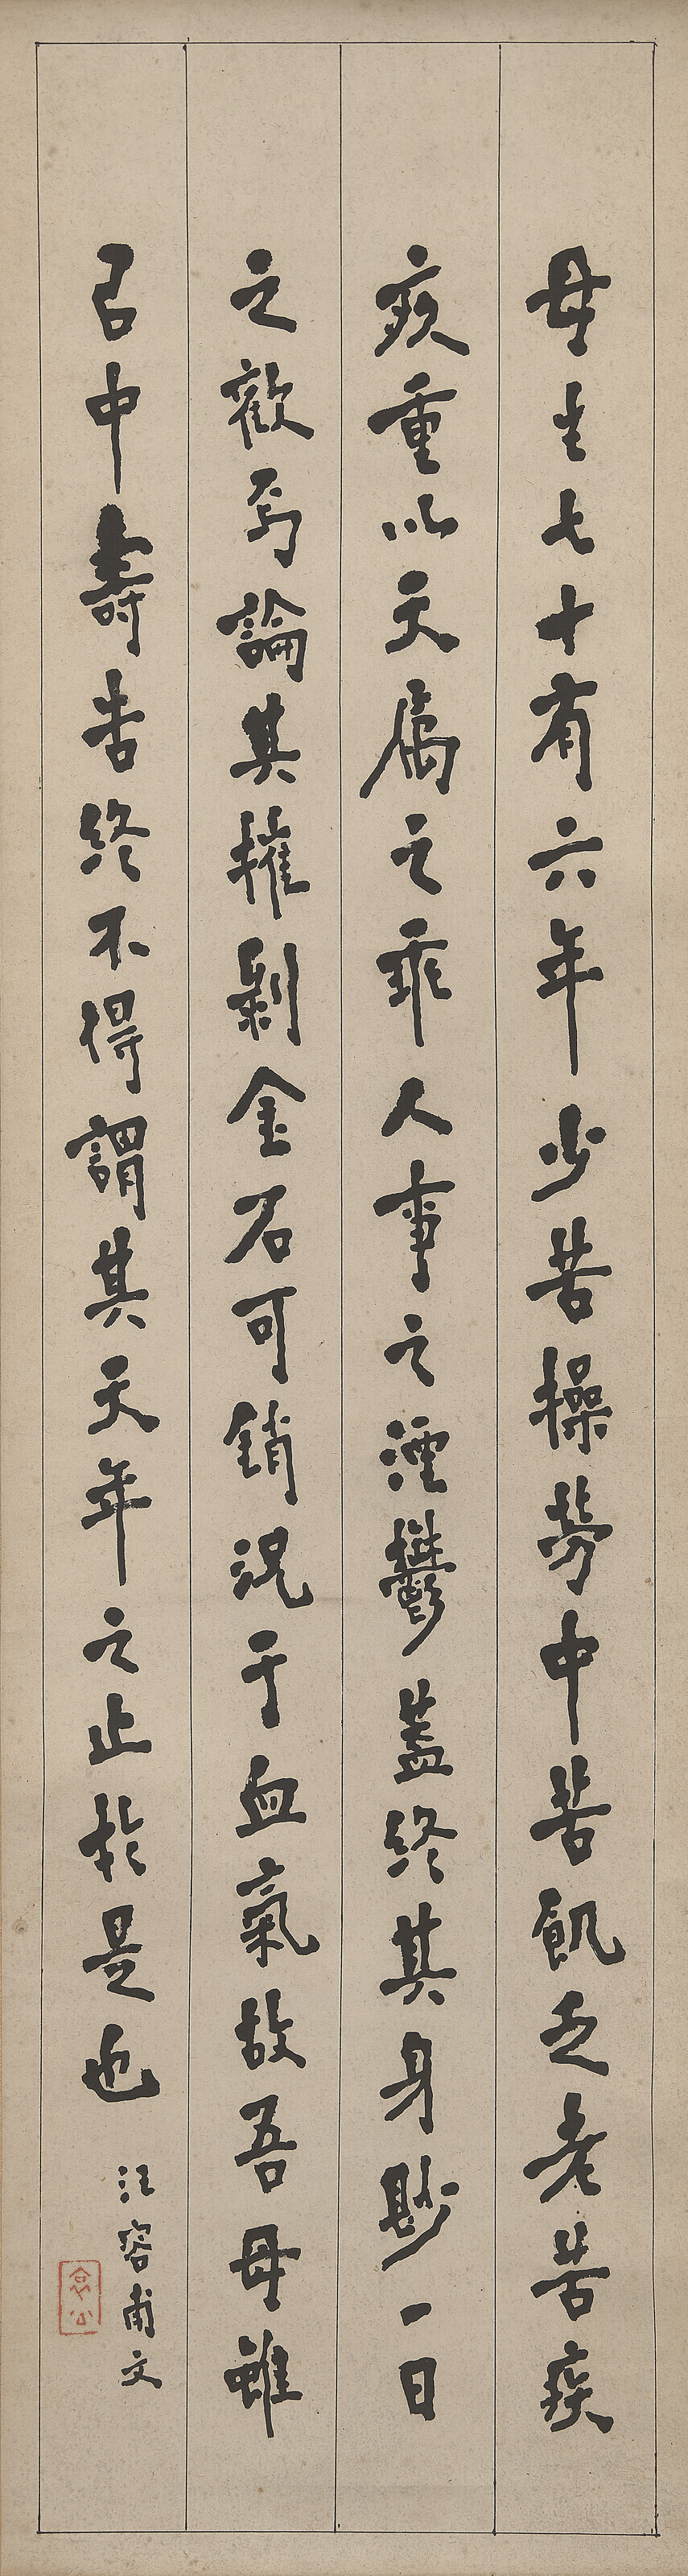 母生七十有六年少苦操勞中苦飢乏老苦疾
疢重以天屬之乖人事之湮鬱蓋終其身尟一日
之歡焉論其摧剝金石可銷況于血氣故吾母雖
㠯中壽告終不得謂其天年之止於是也
汪容甫文
念公